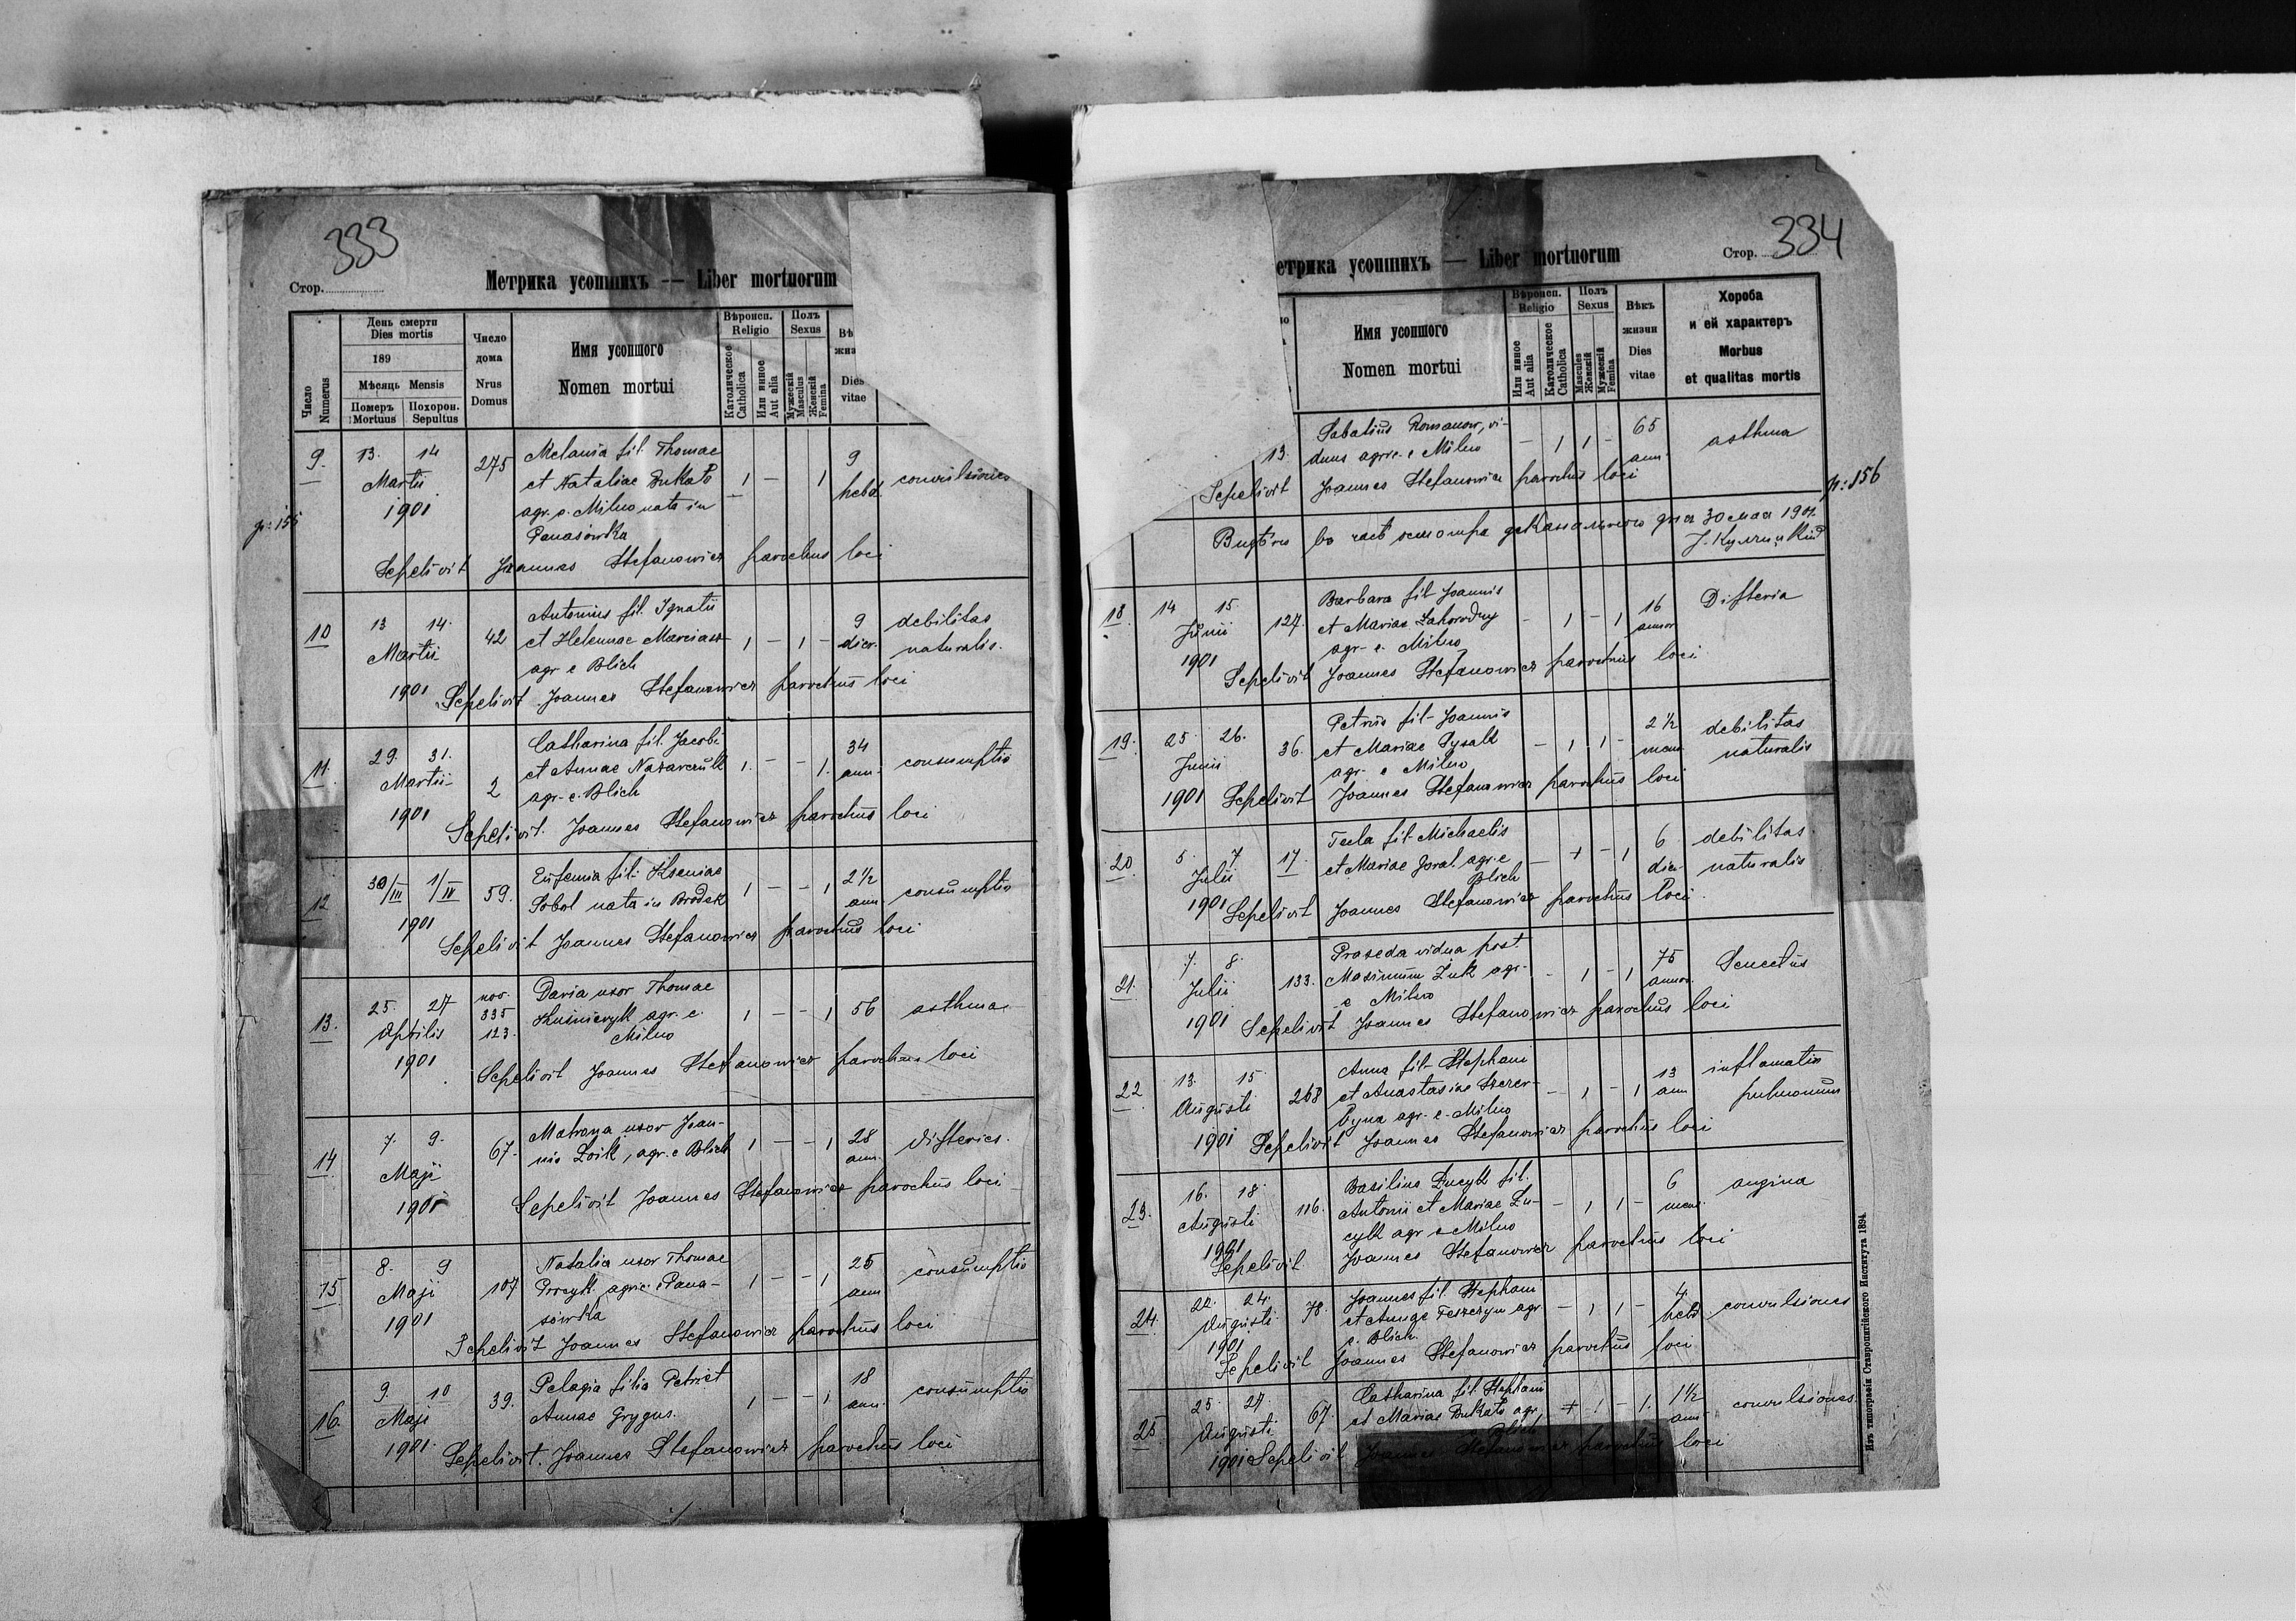 333
Стор.
Метрика усопшихъ — Liber mortuorum
Число
Numerus
День смерти
Dies mortis
189
Мѣсяць Mensis
Померъ
Mortuus
Похорон.
Sepultus
Число
дома
Nrus
Domus
Имя усопшого
Nomen mortui
Вѣроисп.
Religio
Католическое
Catholica
Или инное
Aut alia
Полъ
Sexus
Мужескій
Masculus
Женскій
Femina
Вѣ
жиз
Dies
vitae
p: 155
9.
13. 14
Martii
1901
275
Melania fil. Thomae
et Nataliae Bukato
agr. e. Milno nata in
Panasówka
1 — 1
9
hebd.
convulsiones
Sepelivit Joannes Stefanowicz parochus loci
10
13 14.
Martii
1901
42
Antonius fil. Ignatii
et Helennae Marciasz
agr e Blich
1 — 1 —
9
dier.
debilitas
naturalis.
Sepelivit Joannes Stefanowicz parochus loci
11.
29. 31.
Martii
1901
2
Catharina fil. Jacobi
et Annae Nazarczuk
agr- e. Blich
1. — — 1.
34
ann.
consumptio
Sepelivit. Joannes Stefanowicz parochus loci
12
30/III 1/IV
1901
59.
Eufemia fil. Kseniae
Sobol nata in Brodek
1 — — 1
2½
ann.
consumptio
Sepelivit Joannes Stefanowicz parochus loci
13.
25. 27
Aprilis
1901
nov.
335
123.
Daria uxor Thomae
Kuśnieryk agr. e.
Milno
1 — — 1
56
asthma
Sepelivit Joannes Stefanowicz parochus loci
14
7. 9.
Maji
1901
67.
Matrona uxor Joan-
nis Zoik, agr. e Blich
1 — — 1
28
ann.
difterics.
Sepelivit Joannes Stefanowicz parochus loci
15
8. 9
Maji
1901
107
Natalia uxor Thomae
agr. e Pana-
sówka
1 — — 1
25
ann
consumptio
Sepelivit Joannes Stefanowicz parochus loci
16.
9. 10
Maji
1901
39.
Pelagia filia Petri et
Annae Grygus.
1 — — 1
18
ann.
consumptio
Sepelivit. Joannes Stefanowicz parochus loci
334
Стор.
етрика усопшихъ — Liber mortuorum
Имя усопшого
Nomen mortui
Вѣроисп.
Religio
Или инное
Aut alia
Католическое
Catholica
Полъ
Sexus
Masculus
Женскій
Мужескій
Femina
Вѣкъ
жизни
Dies
vitae
Хороба
и ей характеръ
Morbus
et qualitas mortis
13.
Sabatius Romanow, vi-
duus agr. e Milno
— 1 1 —
65
ann.
asthma
Sepelivit Joannes Stefanowicz parochus loci
p: 156
Видѣно во часѣ осмотра деканального дня 30 мая 1901.
18.
14 15.
Junii
1901
127.
Barbara fil Joannis
et Mariae Zahorodny
agr- e. Milno
— 1 — 1
16
annor
Difteria
Sepelivit Joannes Stefanowicz parochus loci
19.
25. 26.
Junii
1901
36.
Petrus fil- Joannis
et Mariae Pysalk
agr- e Milno
— 1 1 —
2½
mens.
debilitas
naturalis
Sepelivit Joannes Stefanowicz parochus loci
20
5. 7
Julii
1901
17.
Tecla fil- Michaelis
et Mariae Goral agr. e
Blich
— + — 1
6
dier.
debilitas
naturalis
Sepelivit Joannes Stefanowicz parochus loci.
21.
7. 8.
Julii
1901
133.
Praxeda vidua post.
Maximum Żuk agr-
e Milno
— 1 — 1
75
annor.
Senectus
Sepelivit Joannes Stefanowicz parochus loci
22
13. 15
Augusti
1901
268
Anna fil- Stephani
et Anastasiae Szczer-
agr- e- Milno
— 1 — 1
13
ann
inflamatio
pulmonum
Sepelivit Joannes Stefanowicz parochus loci
23.
16. 18.
Augusti
1901
116.
Basilius Ducyk fil.
Antonii et Mariae Du-
cyk agr e Milno
— 1 1 —
6
mens.
angina
Sepelivit. Joannes Stefanowicz parochus loci
24.
22. 24.
Augusti
1901
78.
Joannes fil. Stephani
et Annae Feszczyn agr
e. Blich
— 1 1 —
4
hebd
convulsiones
Sepelivit Joannes Stefanowicz parochus loci
25
25. 27.
Augusti
1901
67.
Catharina fil. Stephani
et Mariae Bukato agr.
Blich
+ 1 — 1.
1½
ann
convulsiones.
Sepelivit Joannes Stefanowicz parochus loci
Изъ типографіи Ставропигійского Института 1894.